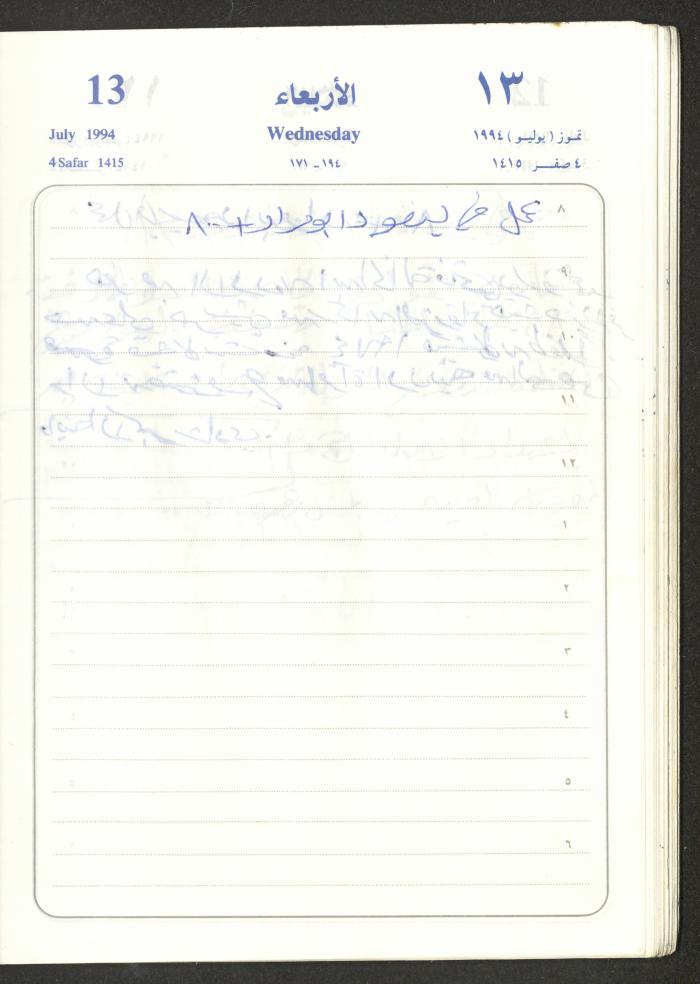 13
الأربعاء
١٣
July 1994
Wednesday
تموز (يوليو) ١٩٩٤
4 Safar 1415
١٩٤ - ١٧١
٤ صفر ١٤١٥
٨
عمل في ابو مراد + ٨٠٠
٩
١٠
١١
١٢
١
٢
٣
٤
٥
٦